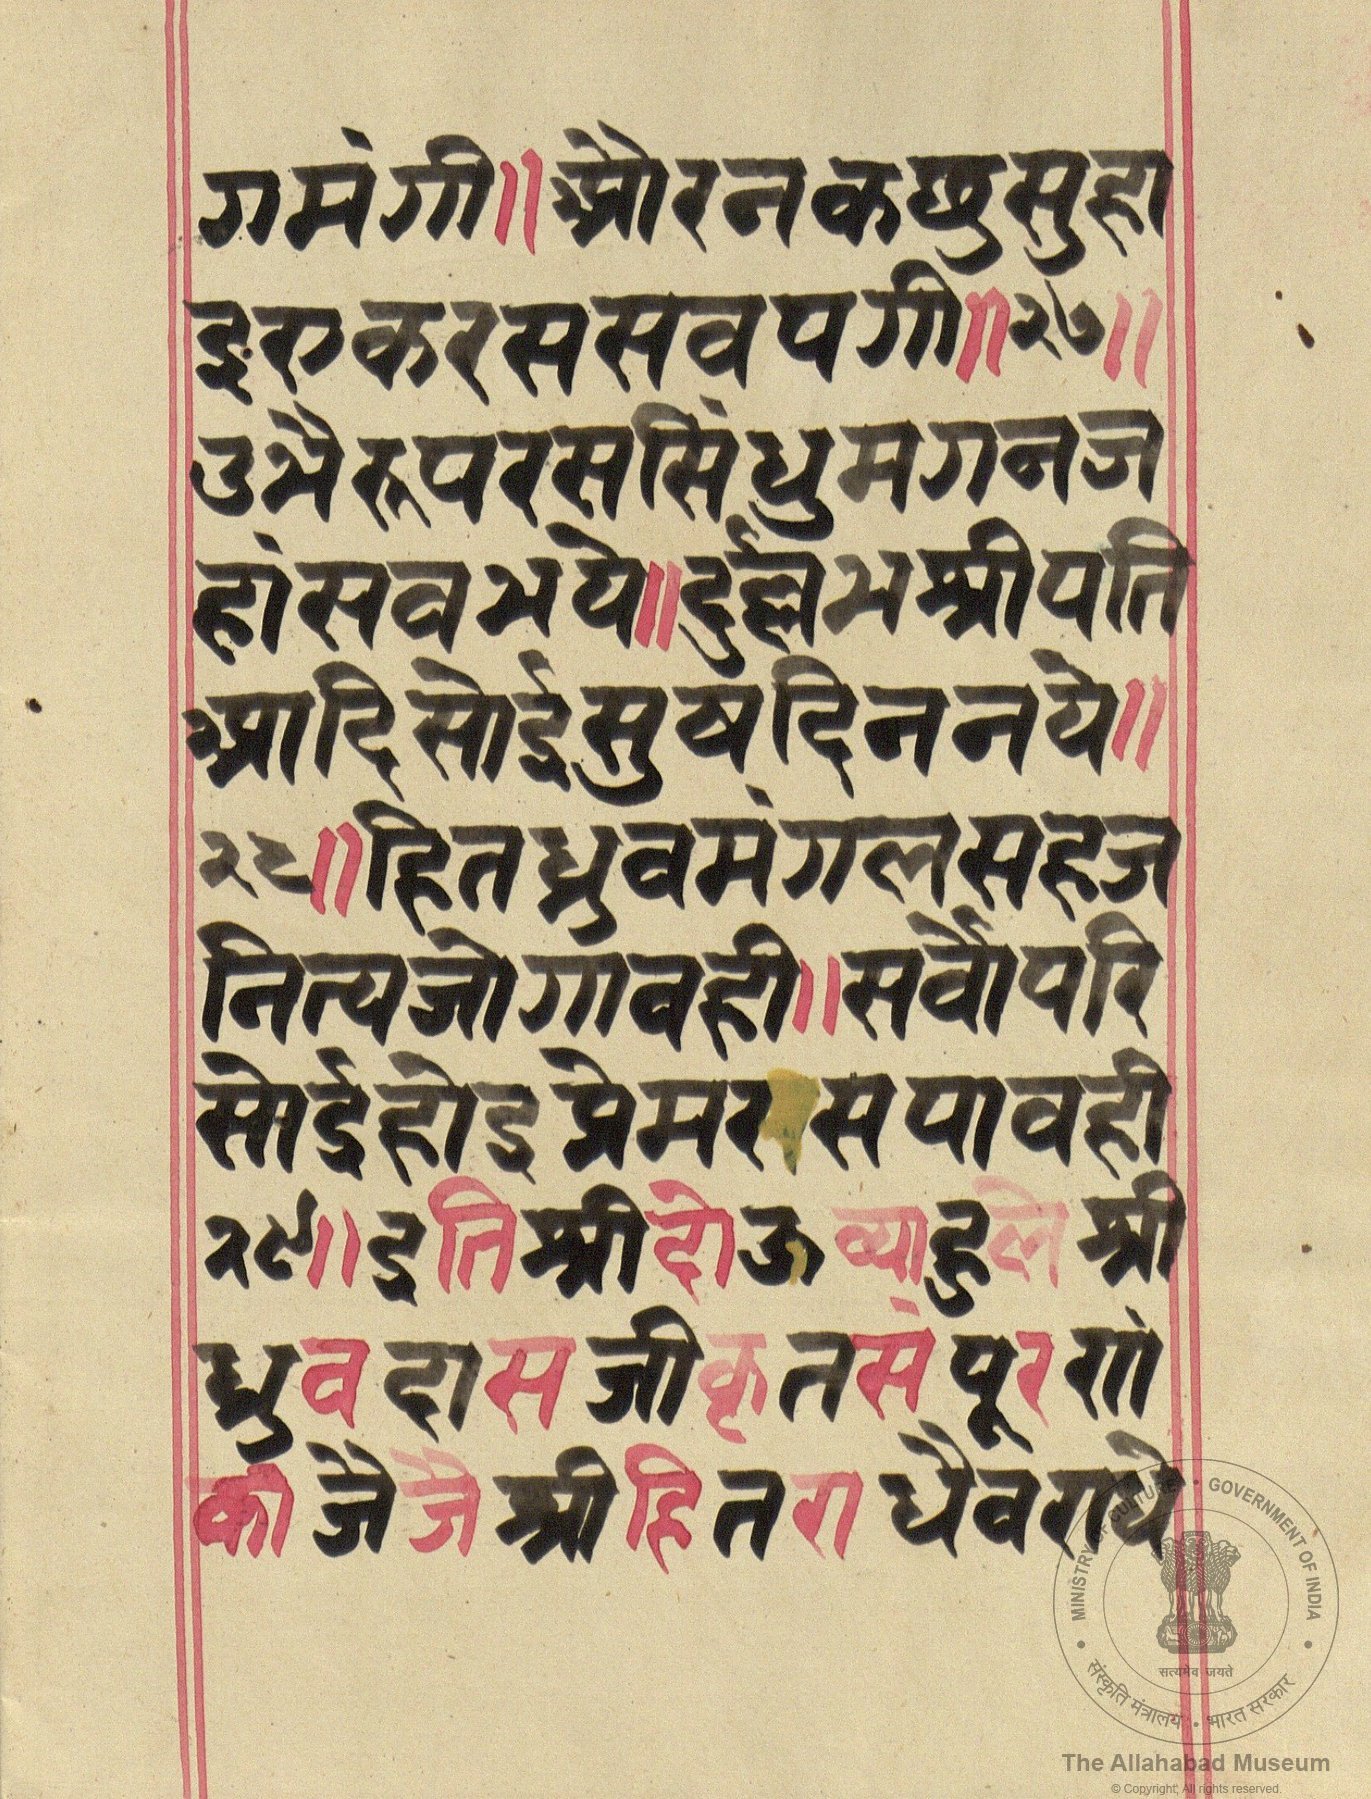 गमंगी॥औरनकछुसुहा
इएकरससवपगी॥२७॥
उभैरूपरससिंधुमगनज
हांसवभये॥दुर्ल्लभश्रीपति
आदिसोईसुषदिननये॥
२८॥हितध्रुवमंगलसहज
नित्यजोगावही॥सर्वोपरि
सोईहोइप्रेमरसपावही
२९॥इतिश्रीदोऊव्याहुलेश्री
ध्रुवदासजीकृतसंपूरणं
की जै जै श्रीहितराधैवराधे
MINISTRY OF CULTURE • GOVERNMENT OF INDIA
सत्यमेव जयते
संस्कृति मंत्रालय • भारत सरकार
The Allahabad Museum
© Copyright; All rights reserved.